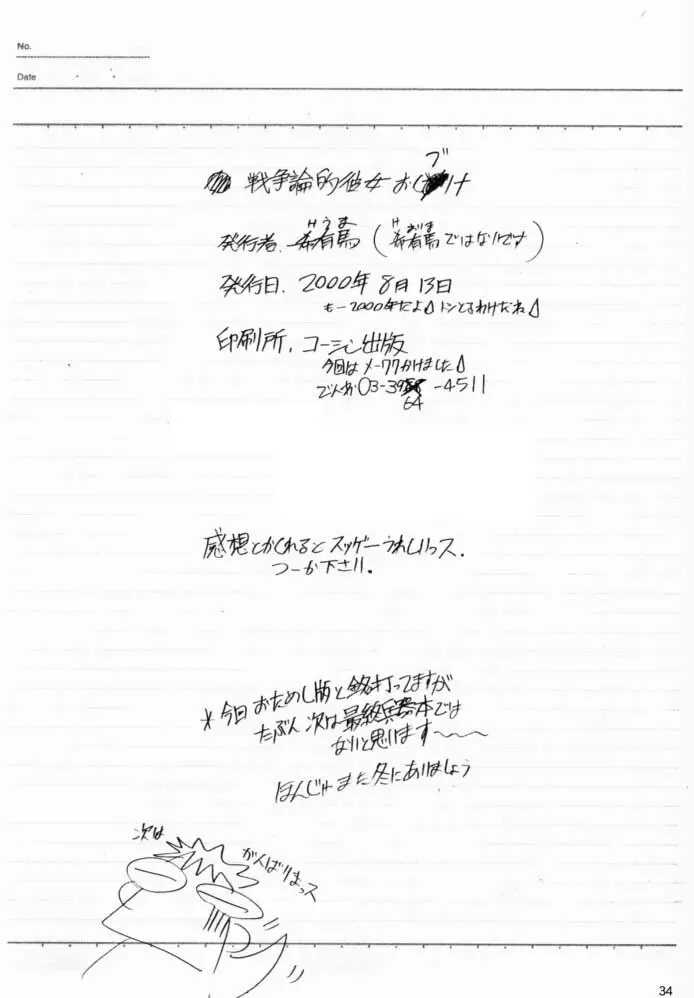 No.
Date
戦争論的彼女 おしブけ
発行者. 希有馬 (希有馬ではないです)
Hうま
発行日. 2000年 8月 13日
も-2000年だよ トシとるわけだね
印刷所. コーシン出版
今回はメーワクかけました
でんわ 03-39 -4511
64
感想とかくれるとスッゲーうれしいっス.
つーか下さい.
*今日おためし版と銘打ってますが
たぶん次は最終兵器本では
ないと思います~~~
ほんじゃまた冬にあいましょう
次は
がんばりまっス
34